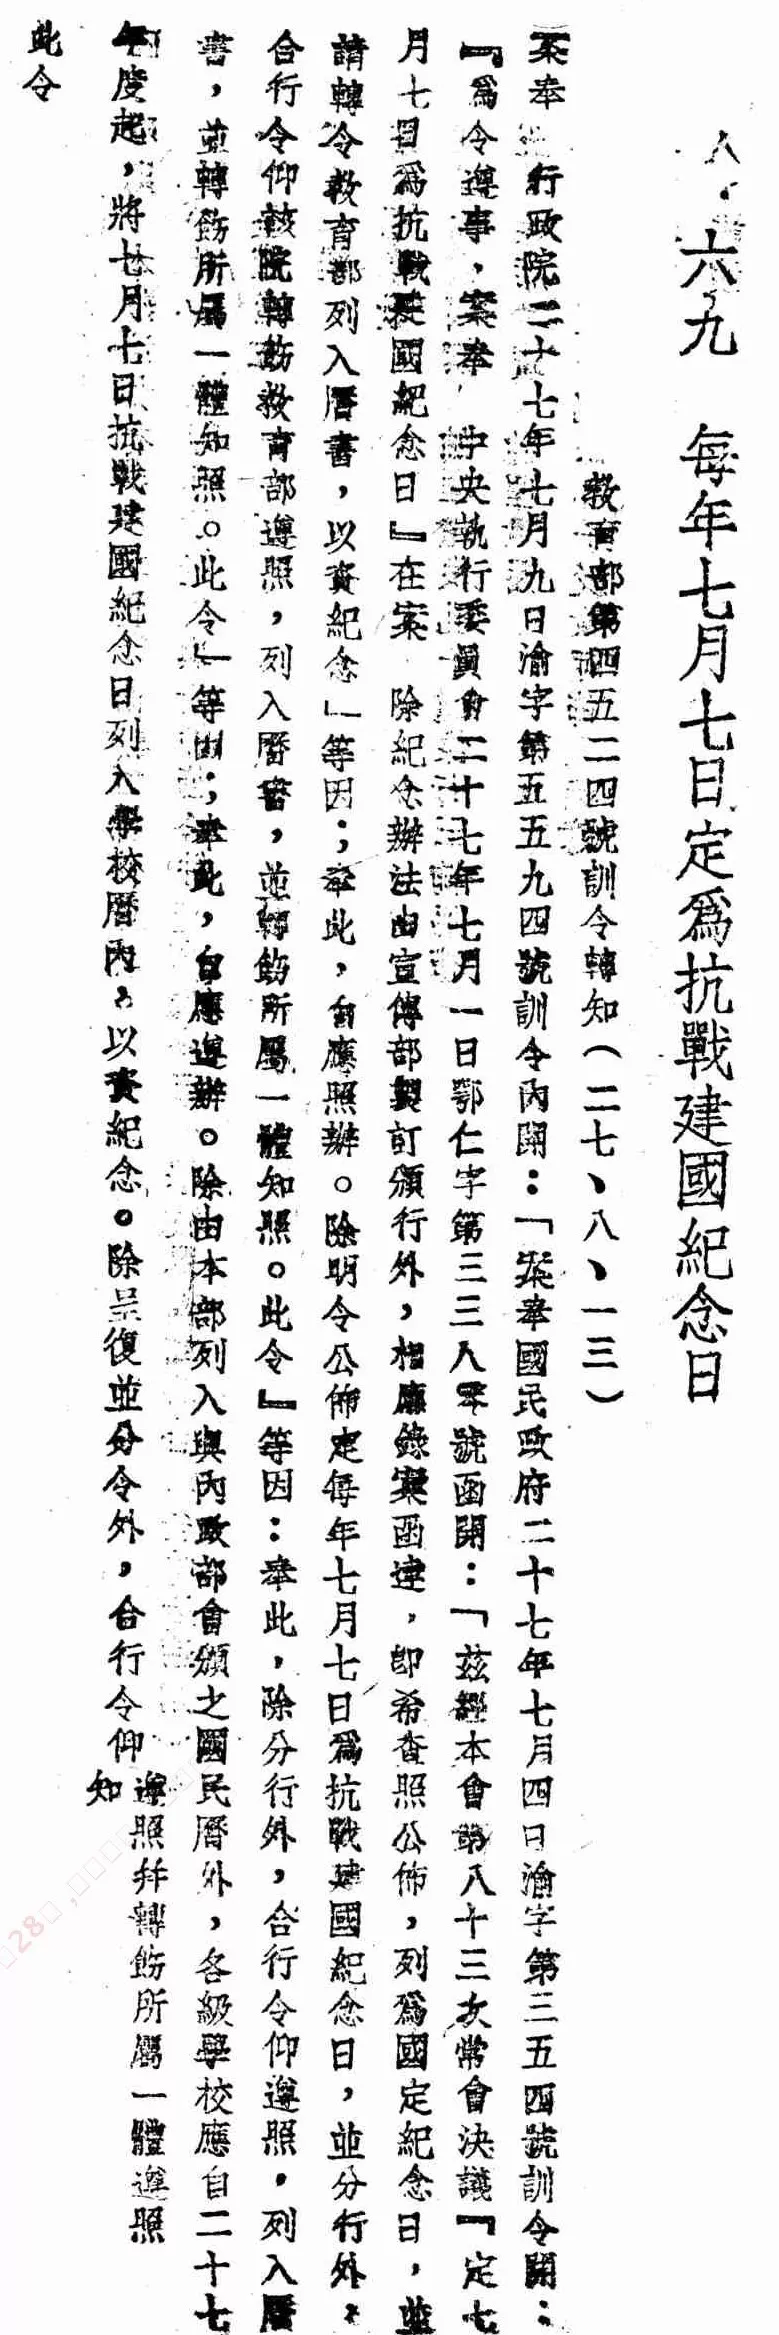 八・六九　每年七月七日定爲抗戰建國紀念日
教育部第四五二四號訓令轉知（二七、八、一三）
案奉　行政院二十七年七月九日渝字第五五九四號訓令內開：「案奉國民政府二十七年七月四日渝字第三五四號訓令開：
『爲令遵事，案奉　中央執行委員會二十七年七月一日鄂仁字第三三八零號函開：「茲經本會第八十三次常會決議『定七
月七日爲抗戰建國紀念日』在案　除紀念辦法由宣傳部製訂頒行外，相應錄案函達，卽希查照公佈，列爲國定紀念日，並
請轉令教育部列入曆書，以資紀念」等因；奉此，自應照辦。除明令公佈定每年七月七日爲抗戰建國紀念日，並分行外，
合行令仰該院轉飭教育部遵照，列入曆書，並轉飭所屬一體知照。此令』等因：奉此，除分行外，合行令仰遵照，列入曆
書，並轉飭所屬一體知照。此令」等由；奉此，自應遵辦。除由本部列入與內政部會頒之國民曆外，各級學校應自二十七
年度起，將七月七日抗戰建國紀念日列入學校曆內，以資紀念。除呈復並分令外，合行令仰
遵照幷轉飭所屬一體遵照
知
此令
28